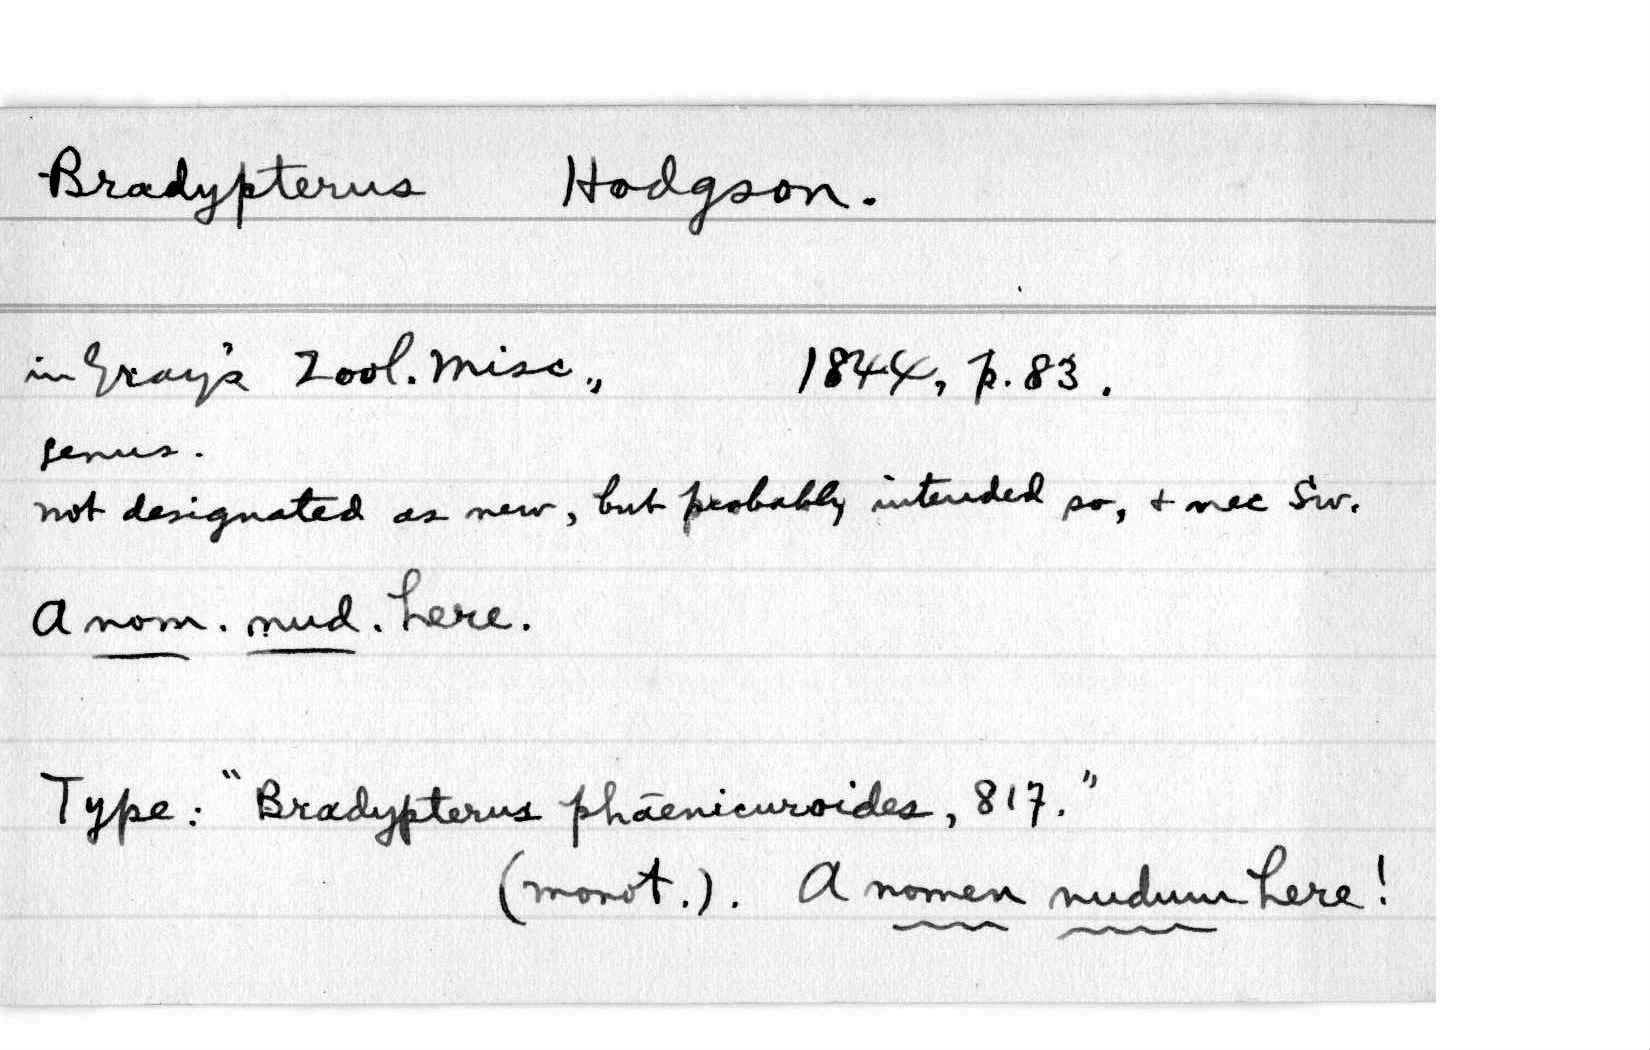 Bradypterus Hodgson.
in Gray's Zool. Misc., 1844, p. 83.
genus.
not designated as new, but probably intended so, + nec Sw.
A nom. nud. here.
Type: "Bradypterus phaenicuroides, 817."
(monot.). A nomen nudum here!